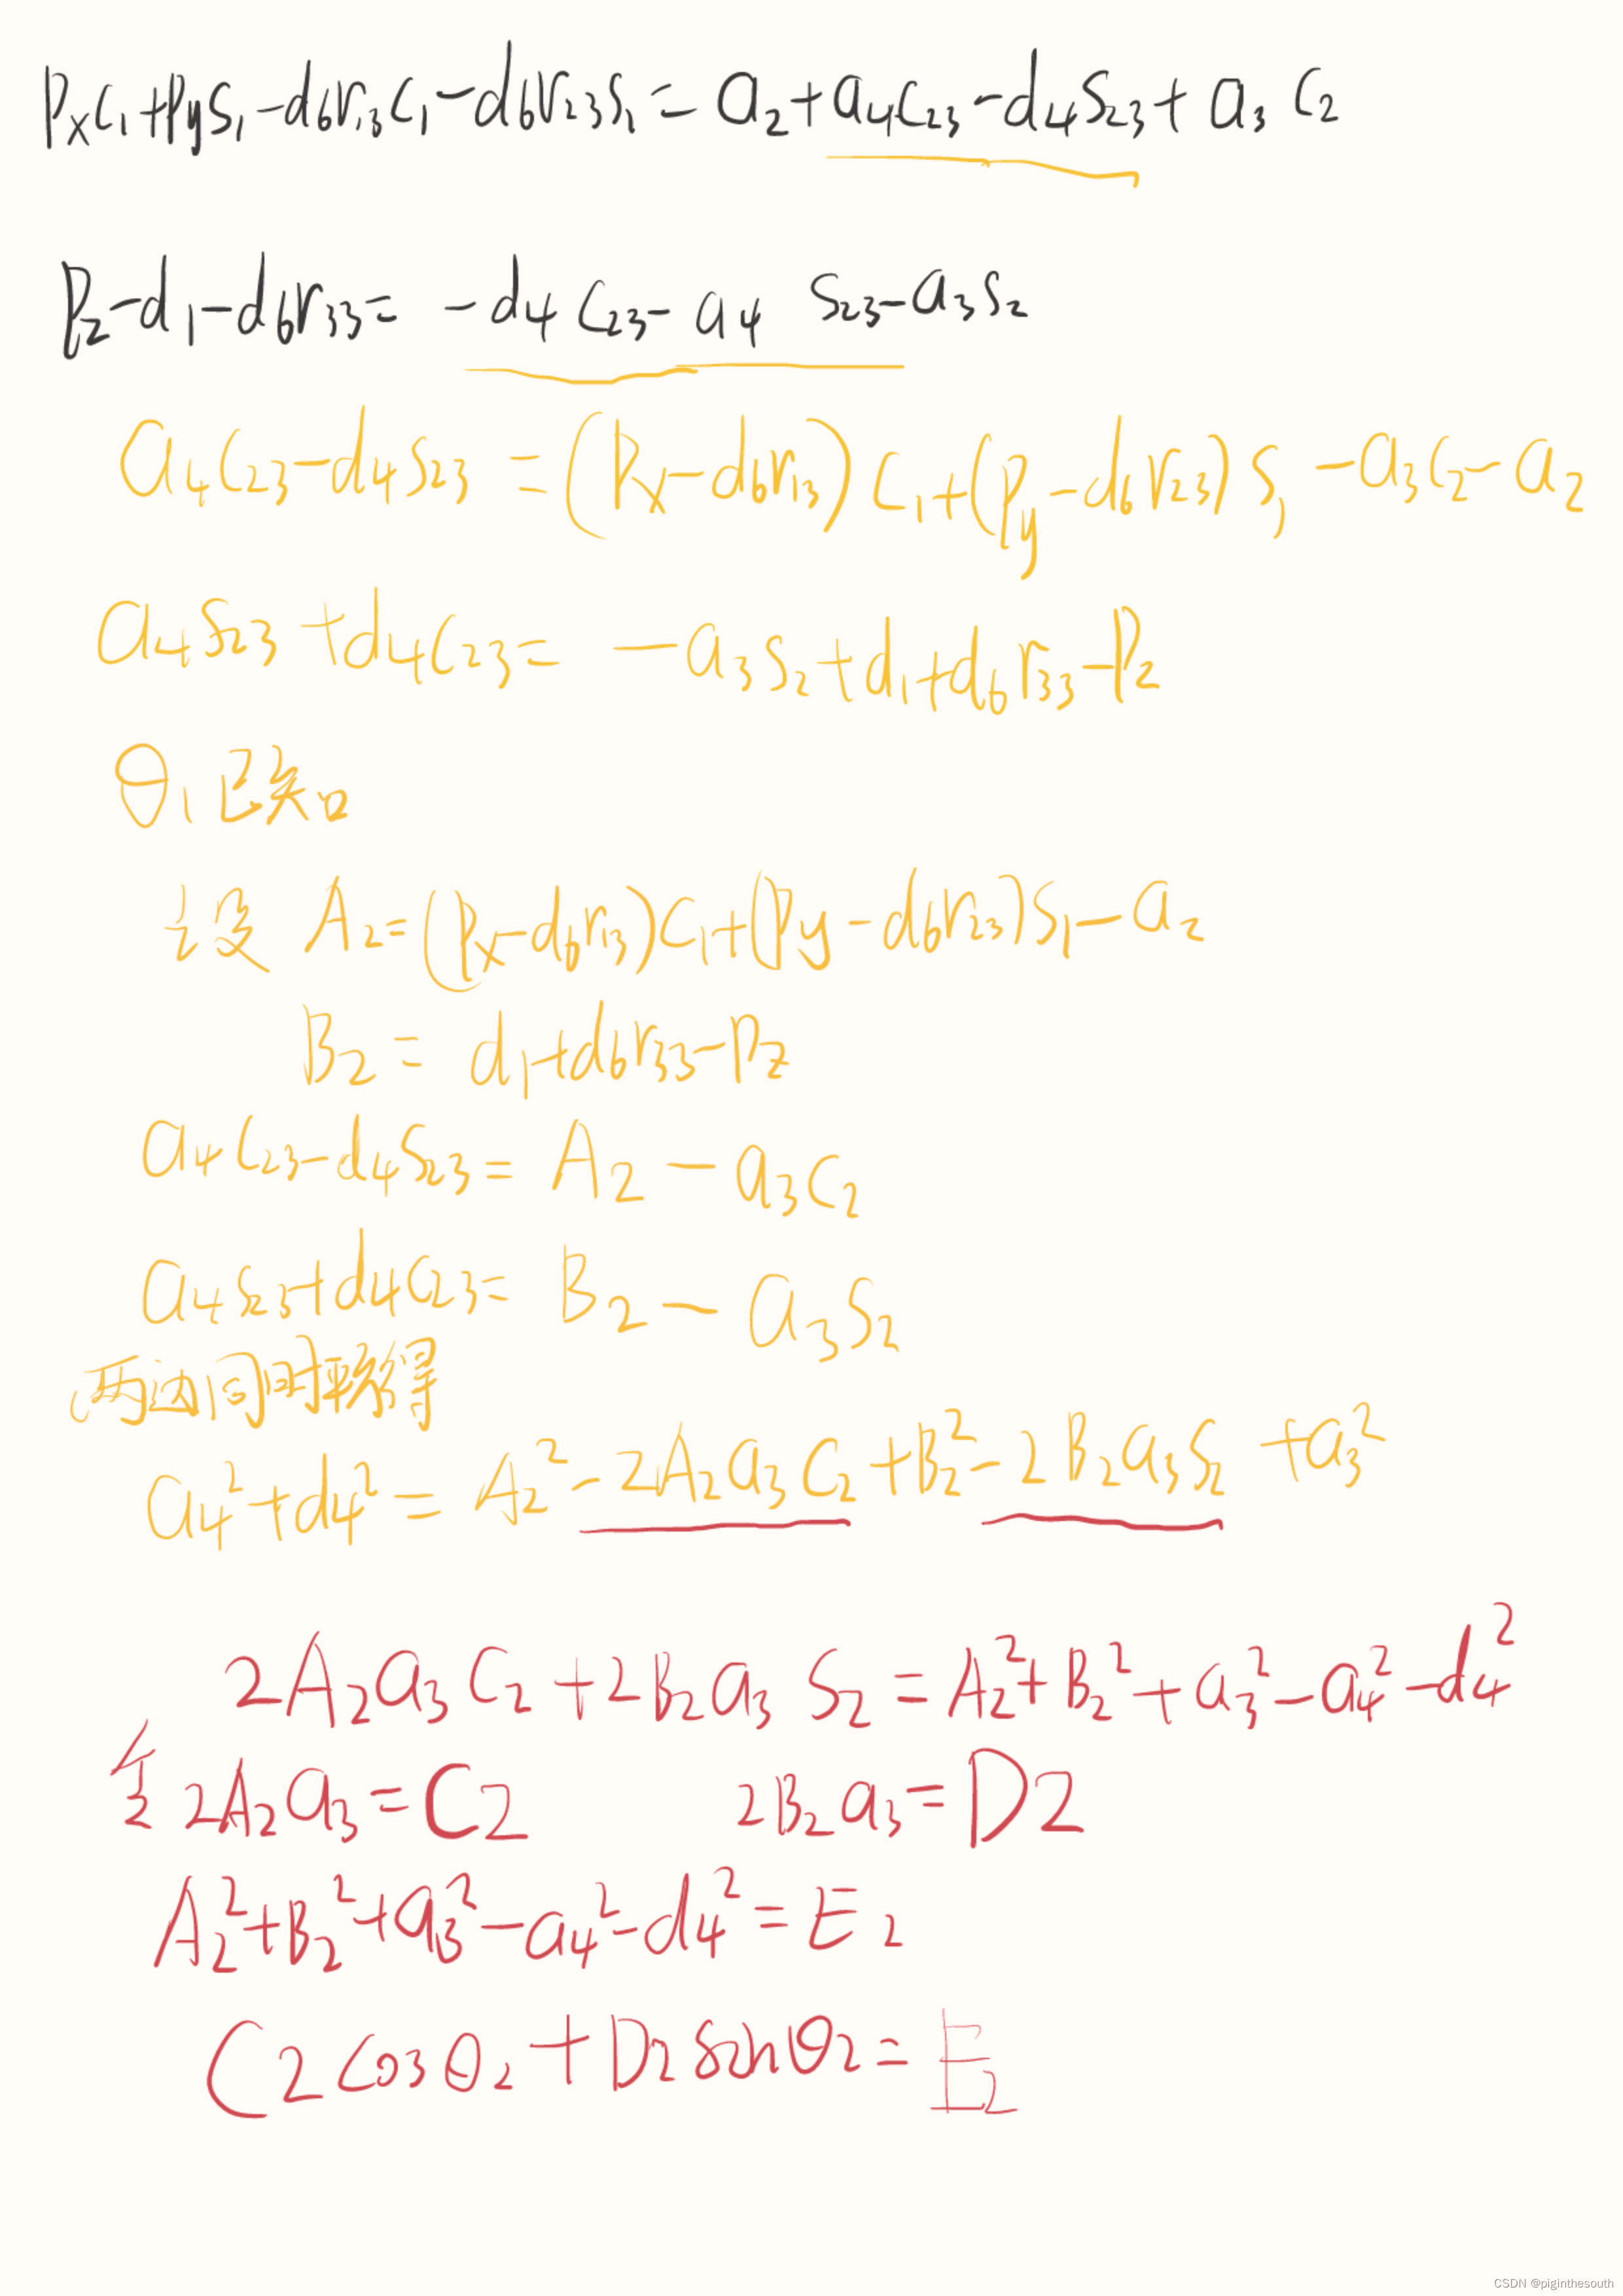 Pxc₁+Pys₁-d₆r₁₃c₁-d₆r₂₃s₁=a₂+a₄c₂₃-d₄s₂₃+a₃c₂
Pz-d₁-d₆r₃₃=-d₄c₂₃-a₄s₂₃-a₃s₂
a₄c₂₃-d₄s₂₃=(Px-d₆r₁₃)c₁+(Py-d₆r₂₃)s₁-a₃c₂-a₂
a₄s₂₃+d₄c₂₃=-a₃s₂+d₁+d₆r₃₃-Pz
θ₁已知
设 A₂=(Px-d₆r₁₃)c₁+(Py-d₆r₂₃)s₁-a₂
B₂=d₁+d₆r₃₃-Pz
a₄c₂₃-d₄s₂₃=A₂-a₃c₂
a₄s₂₃+d₄c₂₃=B₂-a₃s₂
两边同时平方得
a₄²+d₄²=A₂²-2A₂a₃c₂+B₂²-2B₂a₃s₂+a₃²
2A₂a₃c₂+2B₂a₃s₂=A₂²+B₂²+a₃²-a₄²-d₄²
令 2A₂a₃=C2 2B₂a₃=D2
A₂²+B₂²+a₃²-a₄²-d₄²=E₂
C2cosθ₂+D₂sinθ₂=E₂
CSDN @piginthesouth